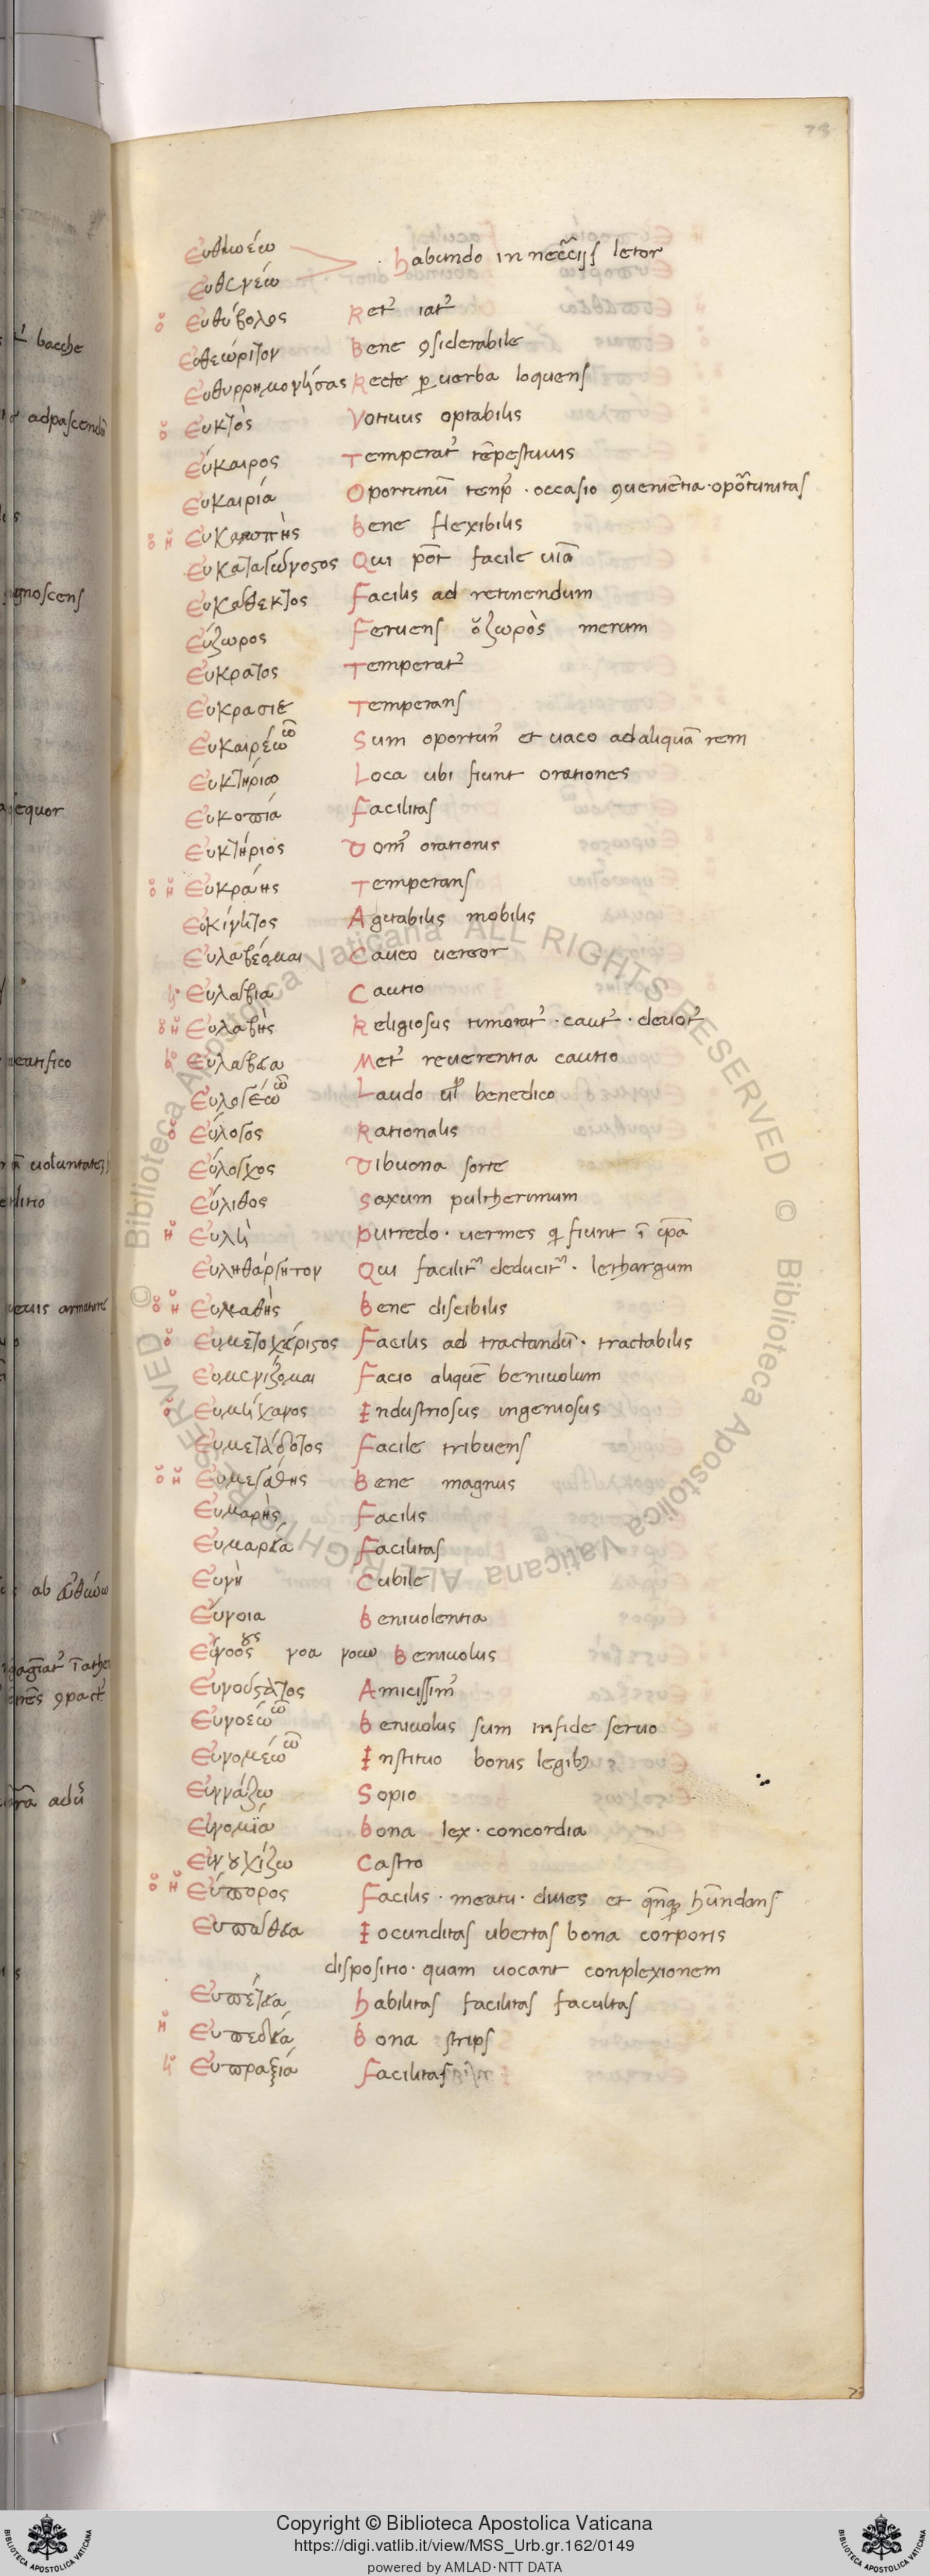 73
Ευθυνέω . habundo in necc̃ijs letor
Ευθενέω
ὁ Ευθύβολος Ret᾽ iat᾽
Ευθεώριτον Bene ꝯsiderabile
Ευθυρρημονήσας Recte ꝑ uerba loquens
ὁ Ευκτὸς Votiuus optabilis
Εύκαιρος Temperat᾽ tẽpestiuus
Ευκαιρία Oportunũ tenp᾽ · occasio ꝯueniẽtia · oportunitas
ὁ ἡ Ευκαμπὴς Bene flexibilis
Qui põt facile uiã
Ευκάθεκτος Facilis ad retinendum
Εύζωρος Feruens ὁ ζωρὸς merum
Εύκρατος Temperat᾽
Ευκρασιε Temperans
Ευκαιρέω ῶ Sum oportun᾽ et uaco ad aliquã rem
Ευκτήρια Loca ubi fiunt orationes
Ευκοπία Facilitas
Ευκτήριος Dom᾽ orationis
ὁ ἡ Ευκράης Temperans
Ευκίνητος Agitabilis mobilis
Ευλαβέομαι Caueo uereor
ἡ Ευλαβια Cautio
ὁ ἡ Ευλαβὴς Religiosus timorat᾽ · caut᾽ · deuot᾽
Ευλαβεια Met᾽ reuerentia cautio
Ευλογέω ῶ Laudo ul᾽ benedico
ὁ Εύλογος Rationalis
Εύλογχος Di buona sorte
Εύλιθος Saxum pulcherimum
ἡ Ευλὴ Putredo · uermes q̃ fiunt ĩ
Ευληθάργητον Qui facilit᾽ deducit᾽ · lethargum
ὁ ἡ Ευμαθὴς Bene discibilis
ὁ Ευμεταχείριστος Facilis ad tractandũ · tractabilis
Ευμενίζομαι Facio aliquẽ beniuolum
ὁ Ευμήχανος Industriosus ingeniosus
Ευμετάδοτος Facile tribuens
ὁ ἡ Ευμεγάθης Bene magnus
Ευμαρὴς Facilis
Ευμαρεία Facilitas
Ευνὴ Cubile
Εύνοια Beniuolentia
Εύνοος ους νοα νοων Beniuolus
Ευνούστατος Amicissim᾽
Ευνοέω ῶ Beniuolus sum in fide seruo
Ευνομέω ῶ Instituo bonis legibꝫ
Ευνάζω Sopio
Ευνομία Bona lex · concordia
Ευνουχίζω Castro
ὁ ἡ Εύπορος Facilis · meatu · diues et
Ευπάθεια Iocunditas ubertas bona corporis
dispositio · quam uocant conplexionem
Ευπέτεια habilitas facilitas facultas
ἡ Ευπεδειά Bona stirps
ἡ Ευπραξία Facilitas
Copyright © Biblioteca Apostolica Vaticana
https://digi.vatlib.it/view/MSS_Urb.gr.162/0149
powered by AMLAD·NTT DATA